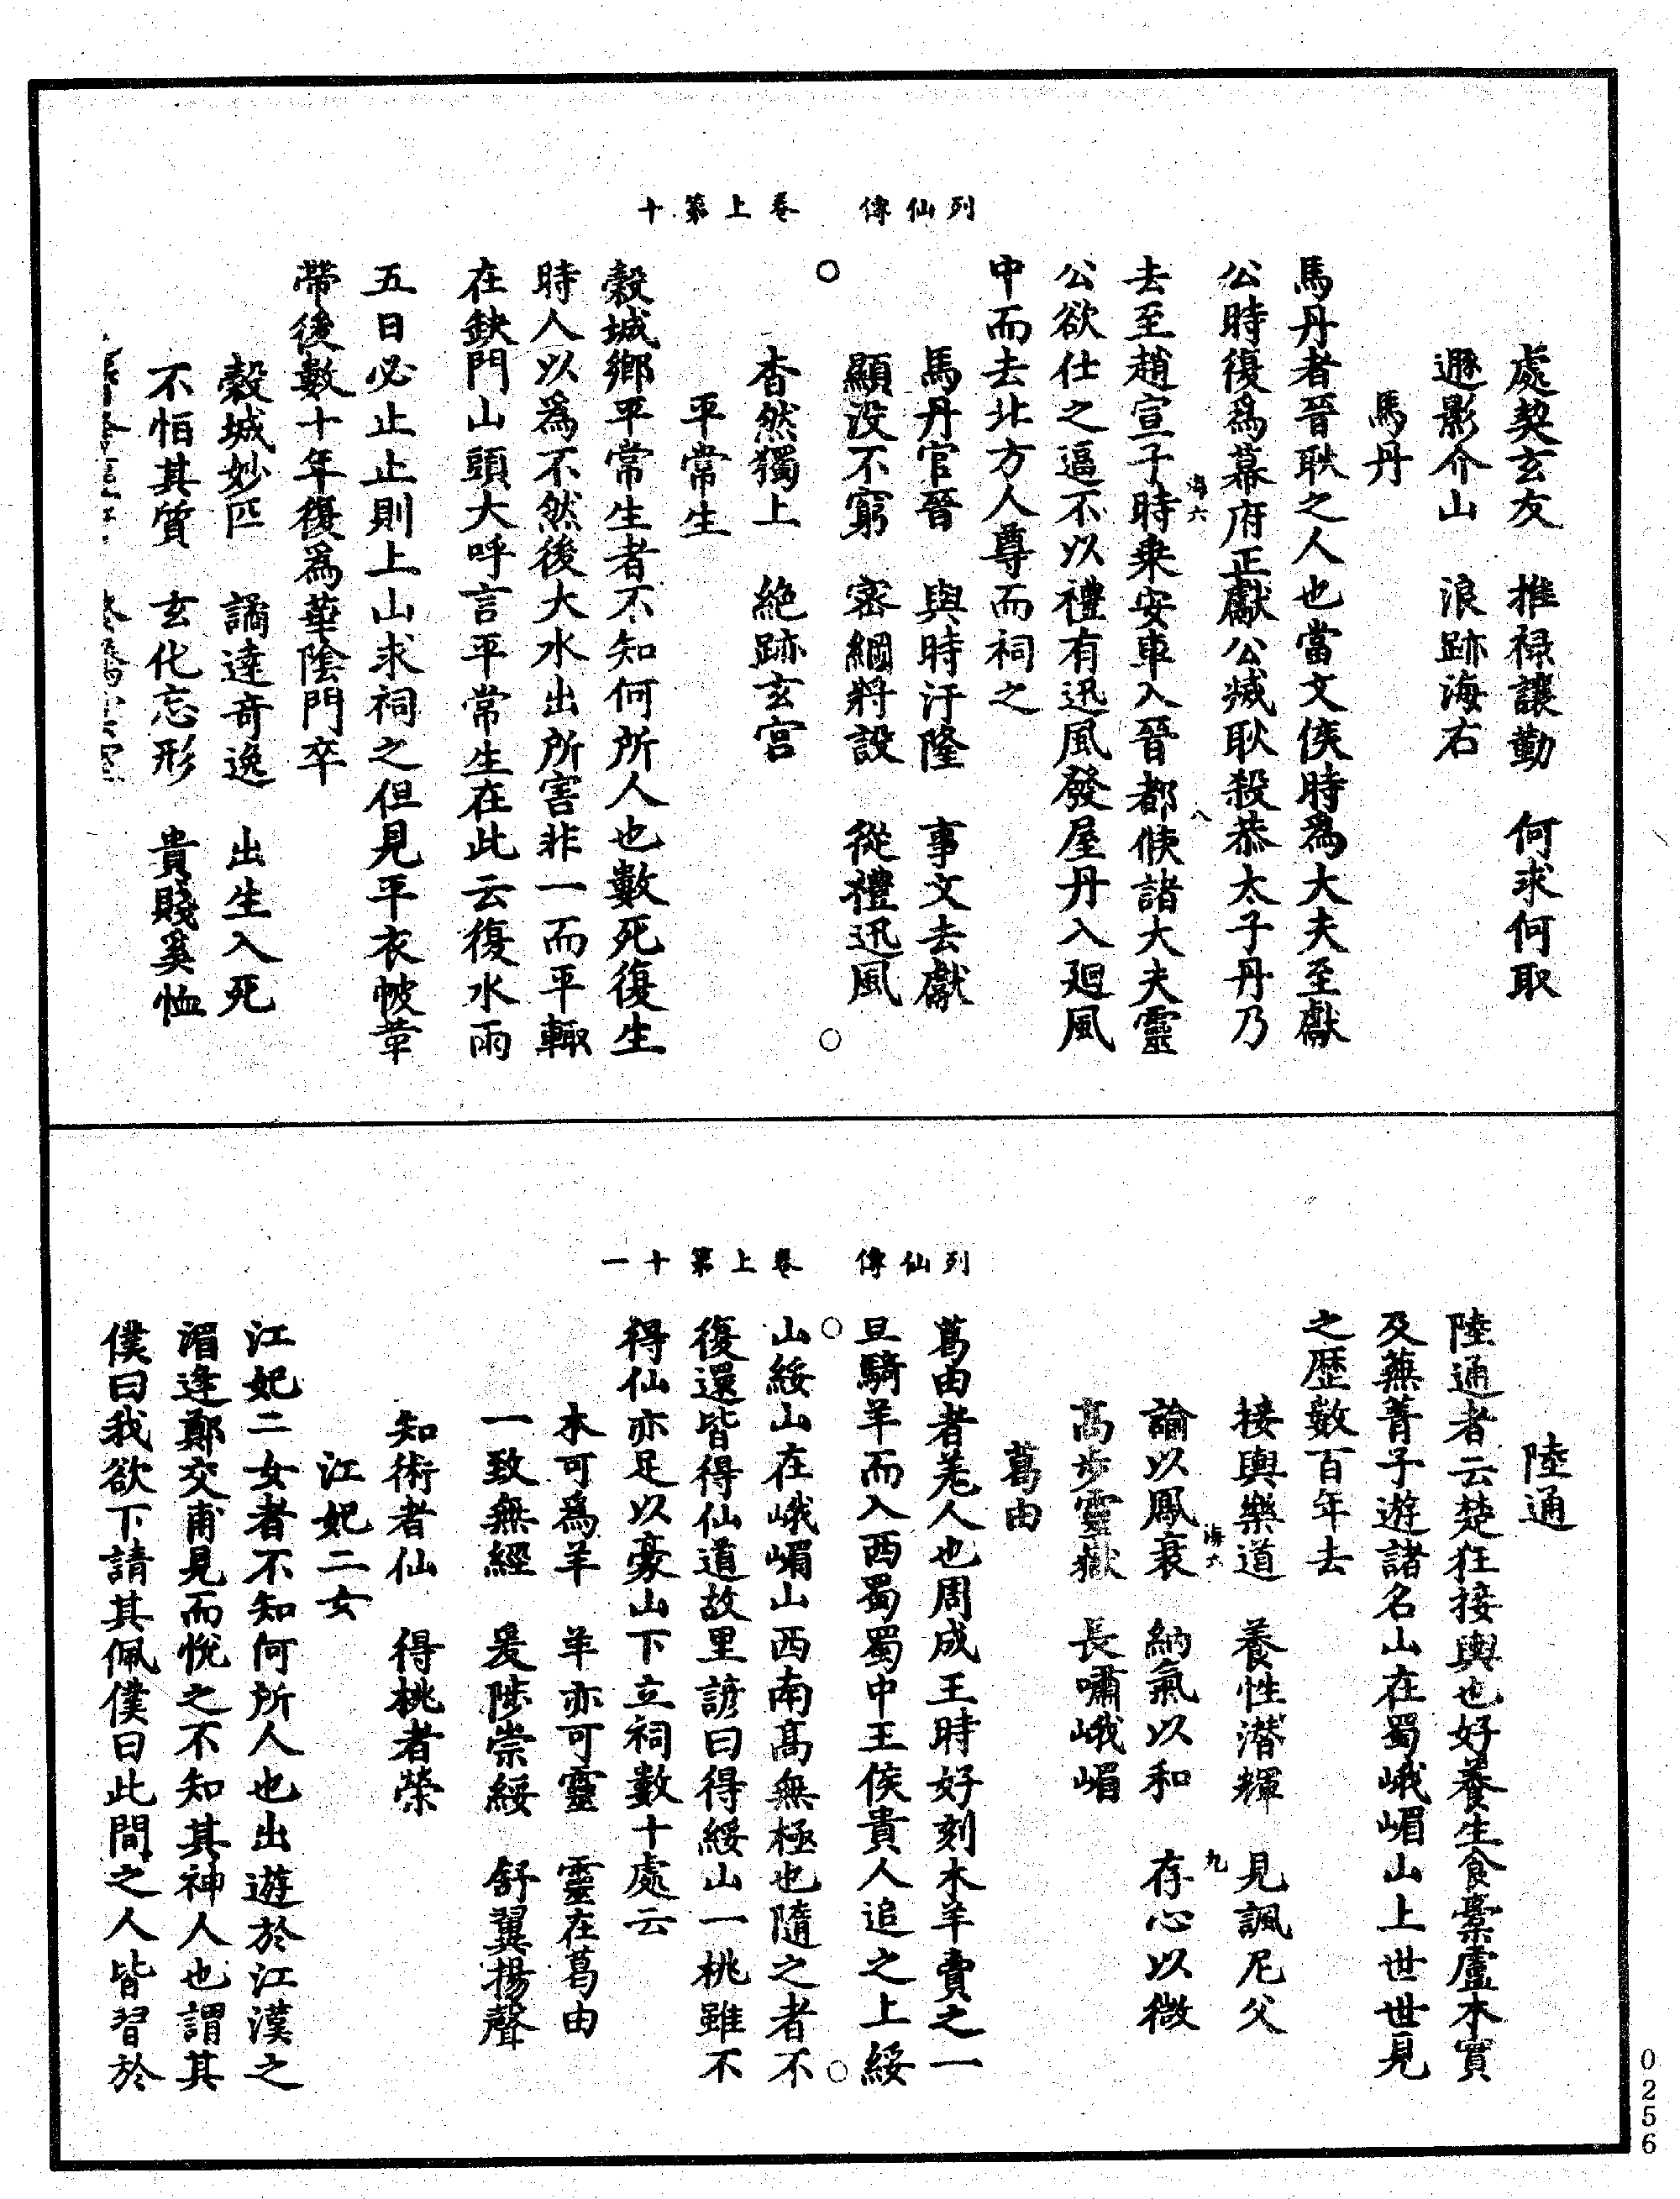 處契玄友　推祿讓勤　何求何取
遯影介山　浪跡海右
馬丹
馬丹者晉耿之人也當文侯時爲大夫至獻
公時復爲幕府正獻公滅耿殺恭太子丹乃
海六　八
去至趙宣子時乗安車入晉都候諸大夫靈
公欲仕之逼不以禮有迅風發屋丹入廻風
中而去北方人尊而祠之
馬丹官晉　與時汙隆　事文去獻
顯没不窮　密網將設　從禮迅風
列仙傳　卷上第十
杳然獨上　絶跡玄宮
平常生
穀城鄉平常生者不知何所人也數死復生
時人以爲不然後大水出所害非一而平輙
在缺門山頭大呼言平常生在此云復水雨
五日必止止則上山求祠之但見平衣帔革
帶後數十年復爲華陰門卒
穀城妙匹　譎達奇逸　出生入死
不恒其質　玄化忘形　貴賤奚恤
陸通
陸通者云楚狂接輿也好養生食橐盧木實
及蕪菁子遊諸名山在蜀峨嵋山上世世見
之歴數百年去
接輿樂道　養性潛輝　見諷尼父
海六　九
諭以鳳衰　納氣以和　存心以微
高步靈嶽　長嘯峨嵋
葛由
葛由者羌人也周成王時好刻木羊賣之一
旦騎羊而入西蜀蜀中王侯貴人追之上綏
列仙傳　卷上第十一
山綏山在峨嵋山西南高無極也隨之者不
復還皆得仙道故里諺曰得綏山一桃雖不
得仙亦足以豪山下立祠數十處云
木可爲羊　羊亦可靈　靈在葛由
一致無經　爰陟崇綏　舒翼揚聲
知術者仙　得桃者榮
江妃二女
江妃二女者不知何所人也出遊於江漢之
湄逢鄭交甫見而悅之不知其神人也謂其
僕曰我欲下請其佩僕曰此間之人皆習於
0256